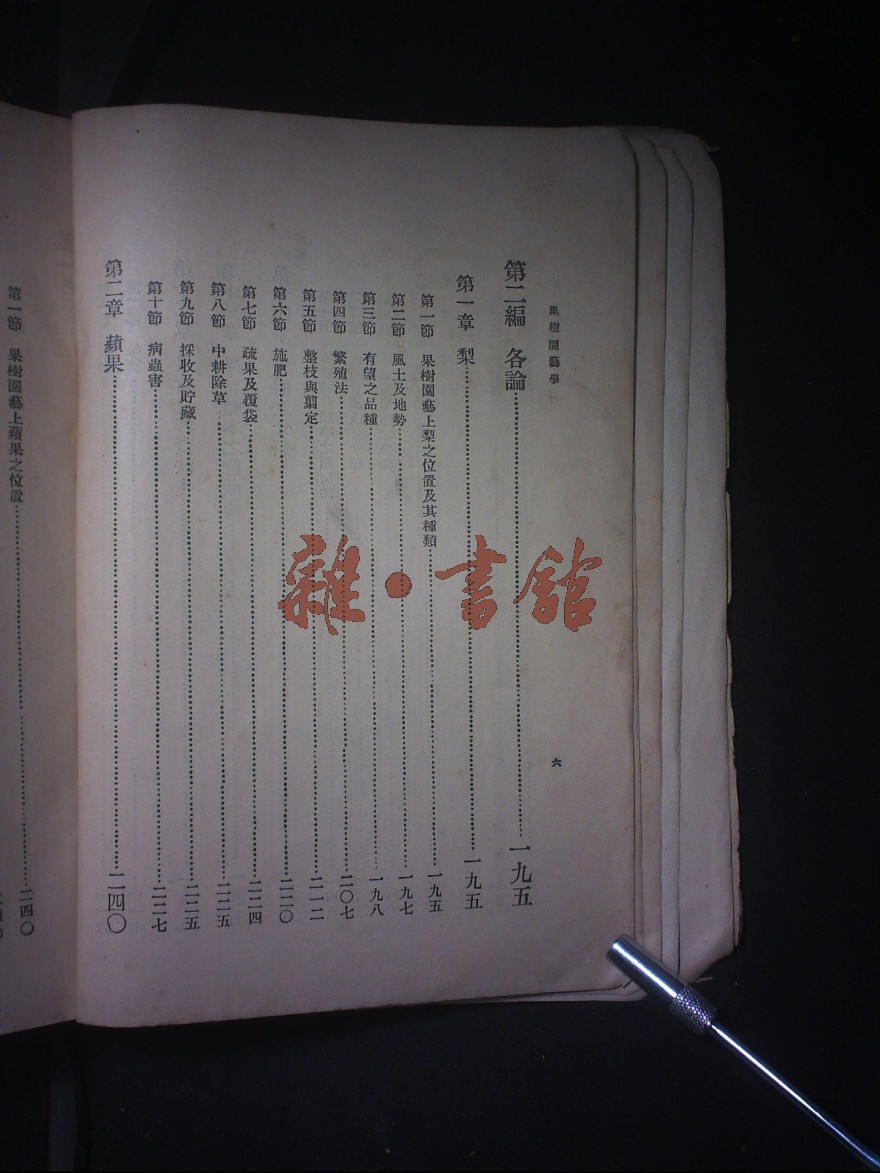 果樹園藝學
六
第二編 各論……一九五
第一章 梨……一九五
第一節 果樹園藝上梨之位置及其種類……一九五
第二節 風土及地勢……一九七
第三節 有望之品種……一九八
第四節 繁殖法……二〇七
第五節 整枝與剪定……二一二
第六節 施肥……二二〇
第七節 疏果及覆袋……二二四
第八節 中耕除草……二二五
第九節 採收及貯藏……二二五
第十節 病蟲害……二二七
第二章 蘋果……二四〇
第一節 果樹園藝上蘋果之位置……二四〇
雜·書館